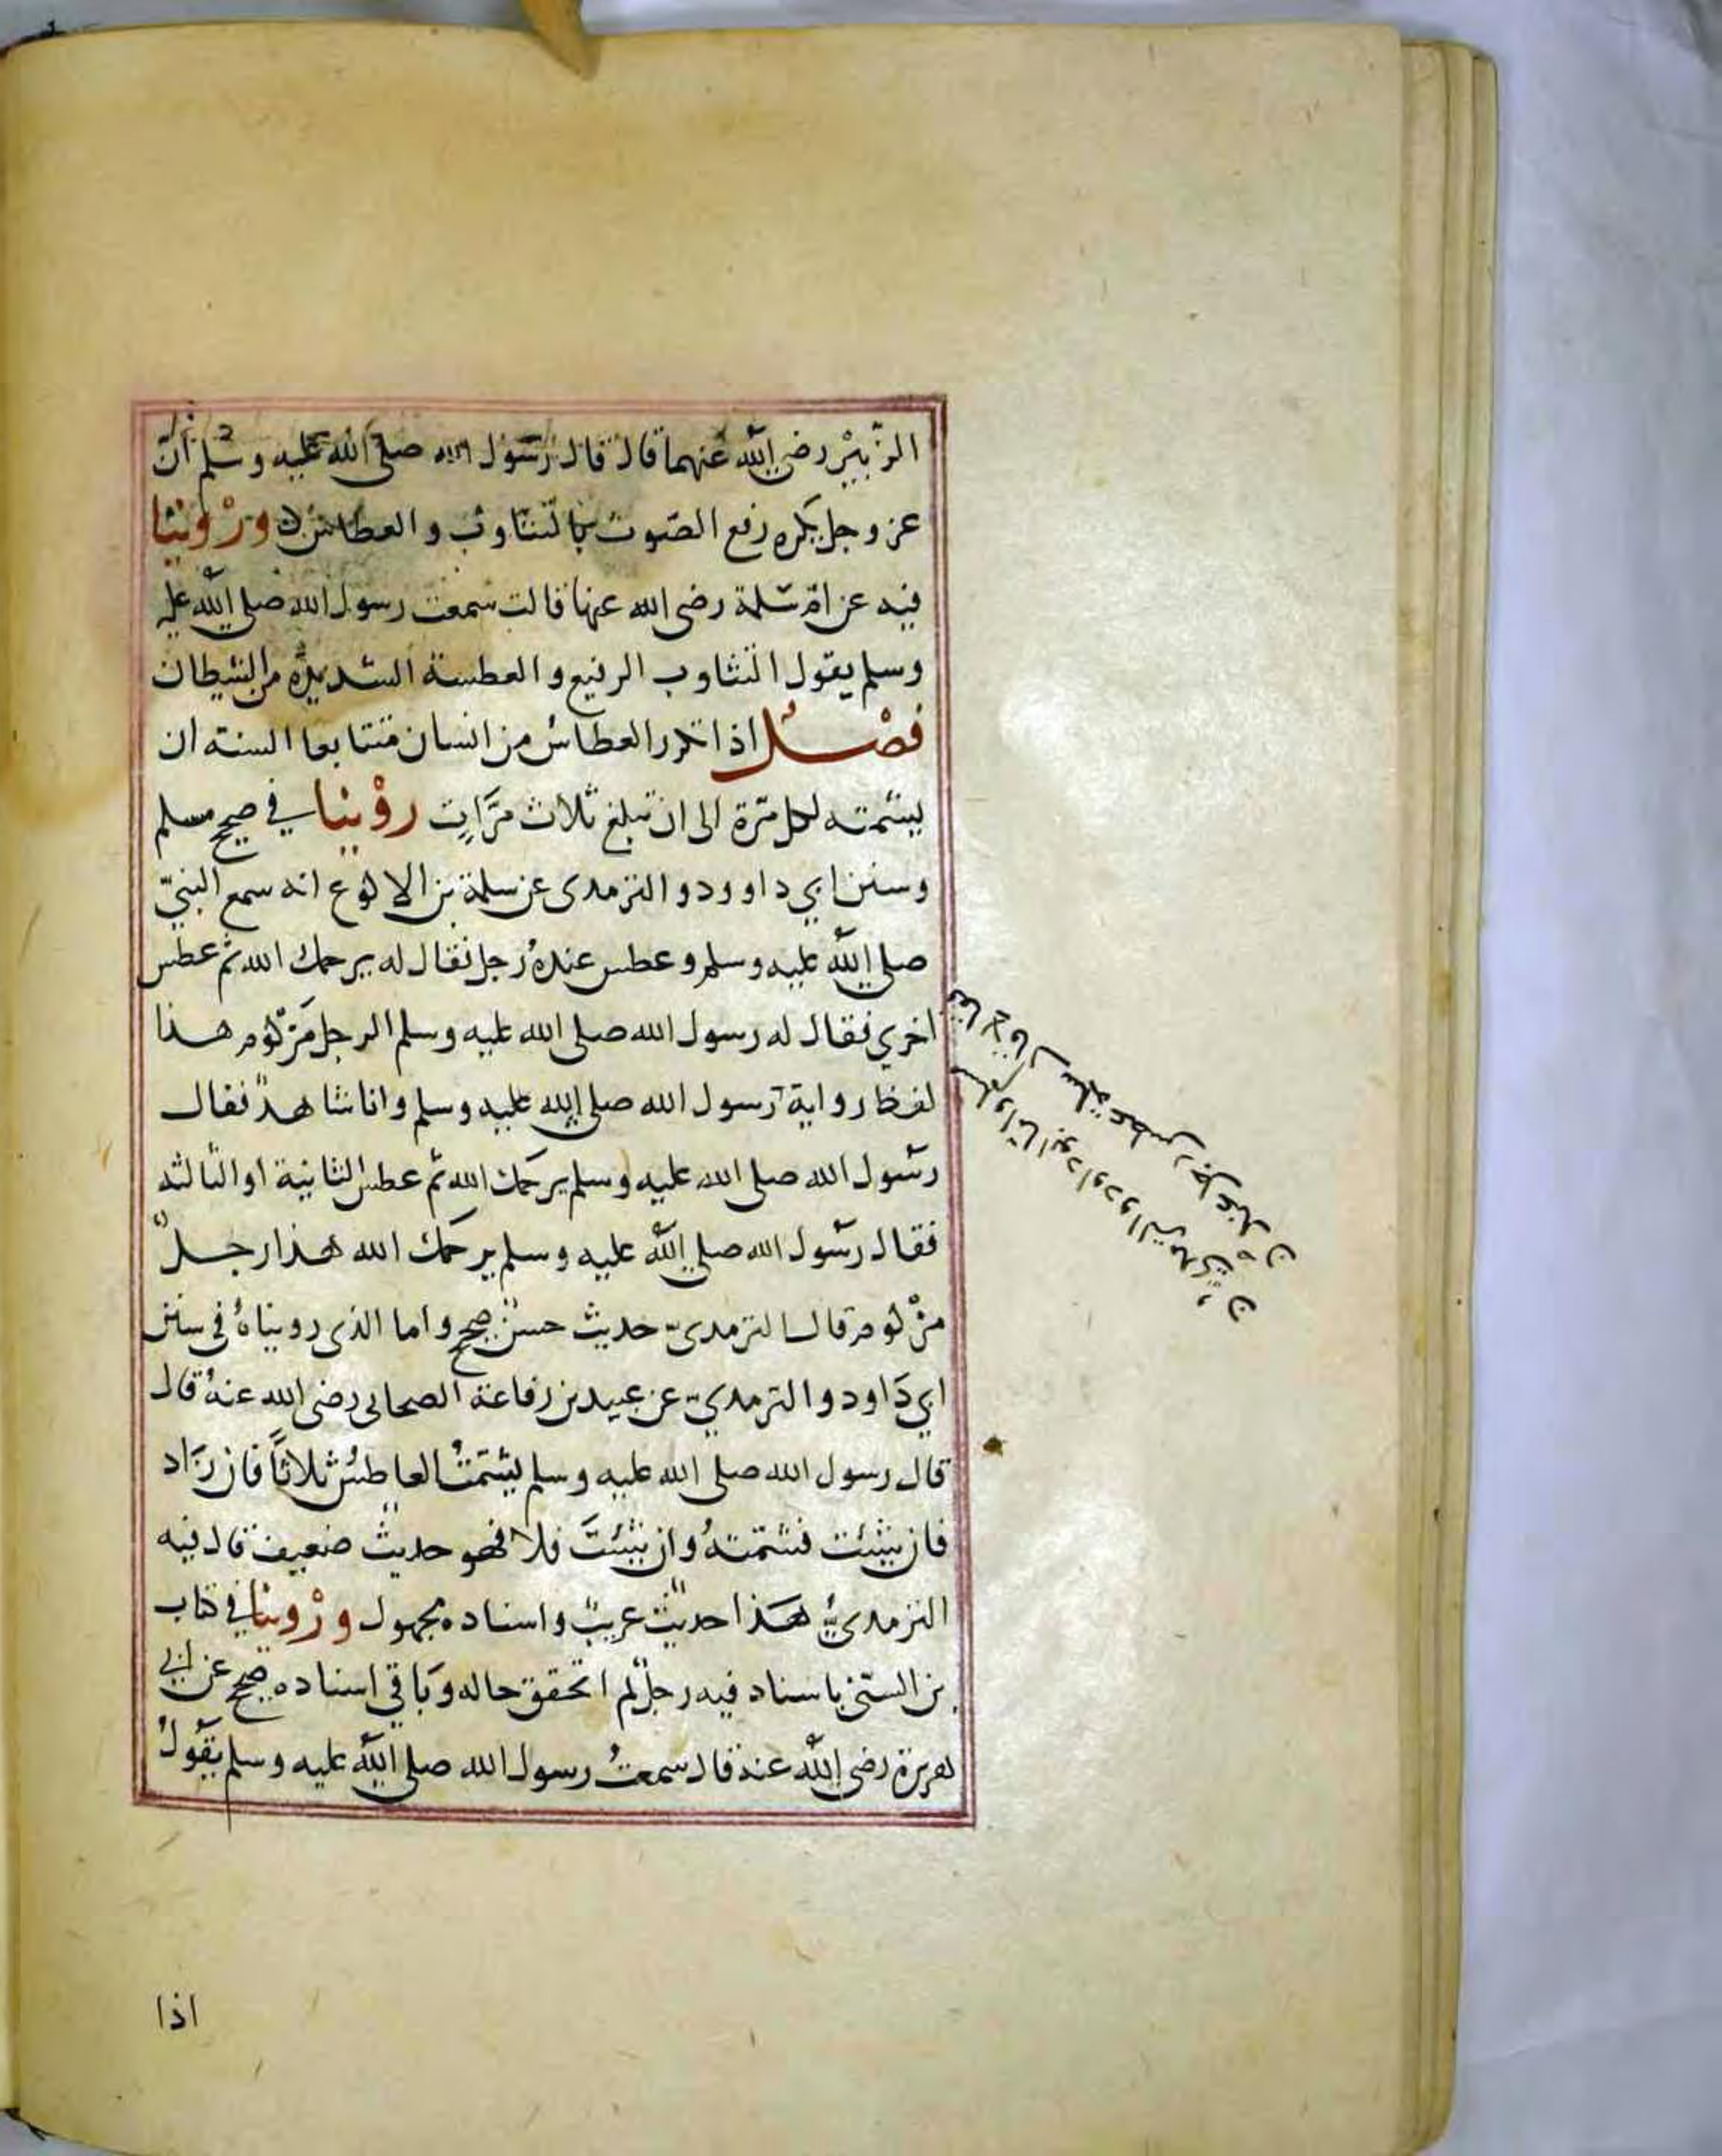 الزُّبَيْر رضي الله عنهما قال قال رسول الله صلى الله عليه وسلم ان
عز وجل يكره رفع الصوت بالتثاوب والعطاس وَرُوِّينا
فيه عن ام سلمة رضى الله عنها قالت سمعت رسول الله صلى الله عليه
وسلم يقول التثاوب الرفيع والعطسة الشديدة من الشيطان
فصل اذا تكرر العطاس من انسان متتابعا السنة ان
يشمته لكل مرّة الى ان تبلغ ثلاث مرّات رُوِّينا في صحيح مسلم
وسنن ابي داوود والترمدى عن سلمة بن الاكوع انه سمع النبيّ
صلى الله عليه وسلم وعطس عنده رجل فقال له يرحمك الله ثم عطس
اخري فقال له رسول الله صلى الله عليه وسلم الرجل مَزْكُوم هذا
لفظ رواية رسول الله صلى الله عليه وسلم وانا شاهد فقال
رسول الله صلى الله عليه وسلم يرحمك الله ثم عطس الثانية او الثالثه
فقال رسول الله صلى الله عليه وسلم يرحمك الله هذا رجلٌ
مزكوم قال الترمدىّ حديث حسن صحيح واما الذى رويناهُ فى سنن
ابي دَاود والترمديّ عن عبيد بن رفاعة الصحابى رضى الله عنهُ قال
قال رسول الله صلى الله عليه وسلم يشمّتُ العاطسُ ثلاثاً فان زَاد
فان شئت فشمتهُ وان شئتَ فلا فهو حديث ضعيف قال فيه
الترمدىّ هذا حديث غريبٌ واسناده مجهول وَرُوِّينا في كتاب
بن السنّى باسناد فيه رجل لم اتحقق حاله وبَاقي اسناده صحيح عن ابي
هريرة رضى الله عنه قال سمعتُ رسول الله صلى الله عليه وسلم يقُولُ
سلمة عطس رجل عند
مسلم وامّا ابو داود والترمدي
اذا